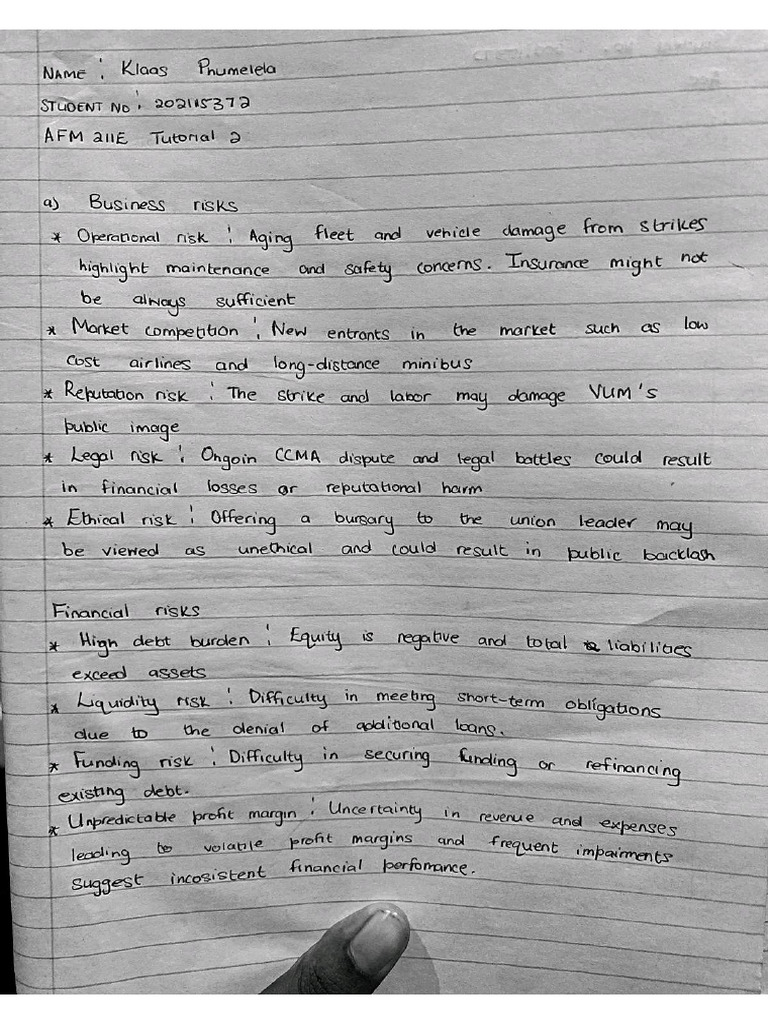 NAME : Klaas Phumelela
STUDENT NO : 202115372
AFM 211E Tutorial 2
a) Business risks
* Operational risk : Aging fleet and vehicle damage from strikes
highlight maintenance and safety concerns. Insurance might not
be always sufficient
* Market competition : New entrants in the market such as low
cost airlines and long-distance minibus
* Reputation risk : The strike and labor may damage VUM's
public image
* Legal risk : Ongoin CCMA dispute and legal battles could result
in financial losses or reputational harm
* Ethical risk : Offering a bursary to the union leader may
be viewed as unethical and could result in public backlash
Financial risks
* High debt burden : Equity is negative and total liabilities
exceed assets
* Liquidity risk : Difficulty in meeting short-term obligations
due to the denial of additional loans.
* Funding risk : Difficulty in securing funding or refinancing
existing debt.
* Unpredictable profit margin : Uncertainty in revenue and expenses
leading to volatile profit margins and frequent impairments
suggest incosistent financial perfomance.